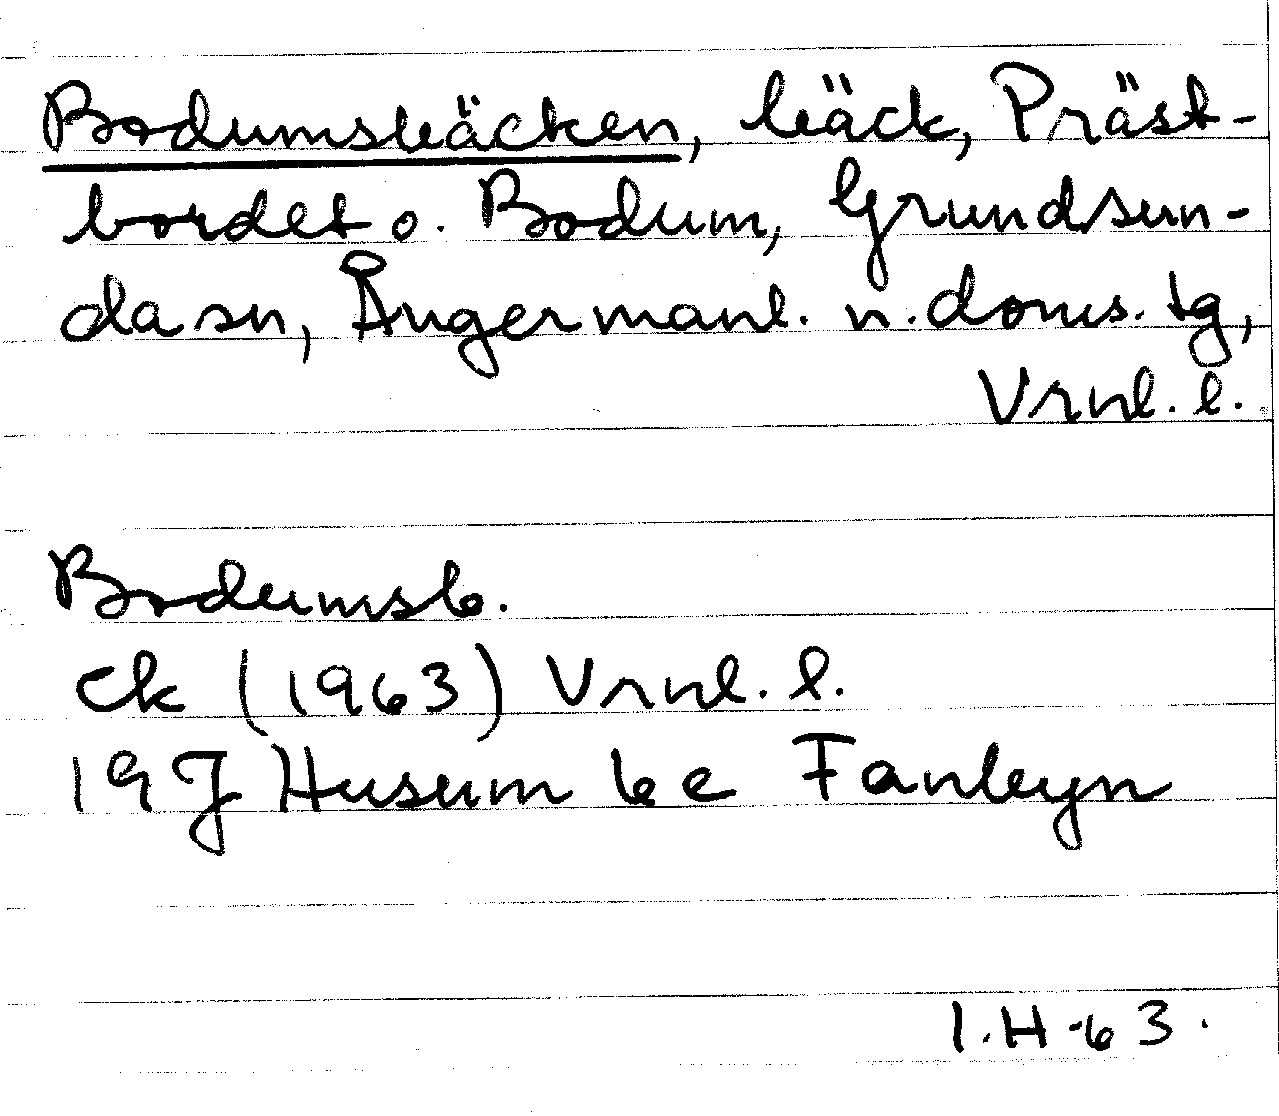 Bodumsbäcken, bäck, Präst-
bordet o. Bodum, Grundsun-
da sn, Ångermanl. n. doms. tg,
Vrnl. l.
Bodumsb.
ek (1963) Vrnl. l.
19 J Husum be Fanbyn
I.H-63.